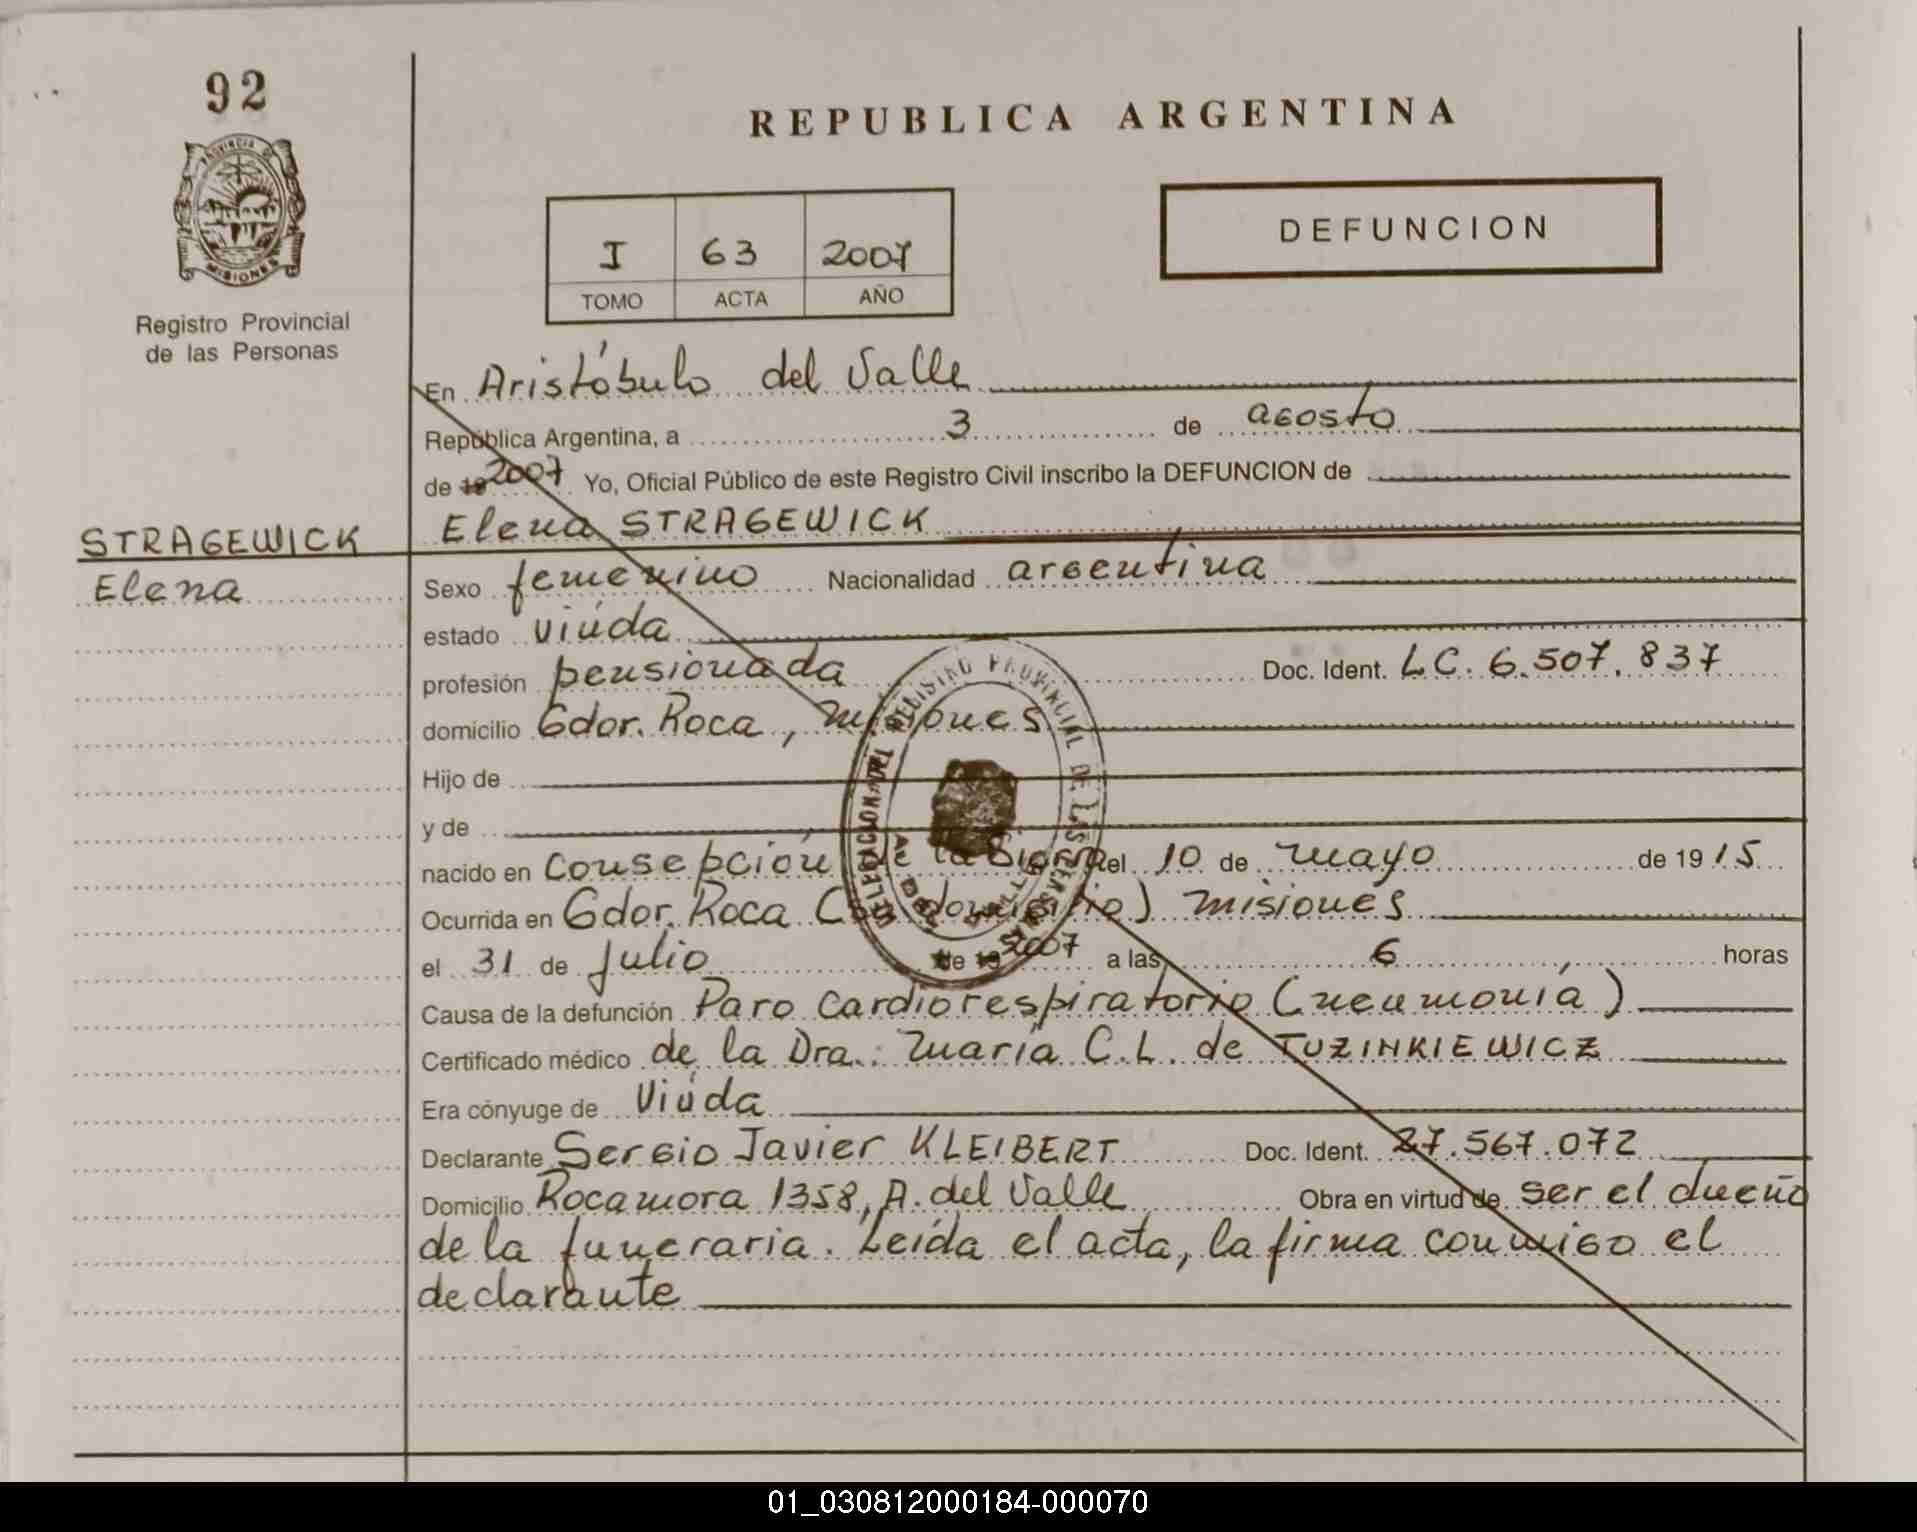 92
REPUBLICA ARGENTINA
PROVINCIA DE
MISIONES
Registro Provincial
de las Personas
DEFUNCION
I 63 2007
TOMO ACTA AÑO
En Aristóbulo del Valle
República Argentina, a 3 de agosto
de 19 2007 Yo, Oficial Público de este Registro Civil inscribo la DEFUNCION de
STRAGEWICK
Elena
Elena STRAGEWICK
Sexo femenino Nacionalidad argentina
estado viúda
profesión pensionada Doc. Ident. LC. 6.507.837
domicilio Gdor. Roca, Misiones
Hijo de
y de
nacido en Consepción de la Sierra el 10 de mayo de 1915
Ocurrida en Gdor. Roca ( domicilio) Misiones
el 31 de julio de 19 2007 a las 6 horas
Causa de la defunción Paro Cardiorespiratorio (neumonía)
Certificado médico de la Dra.: María C.L. de TUZINKIEWICZ
Era cónyuge de Viúda
Declarante Sergio Javier KLEIBERT Doc. Ident. 27.567.072
Domicilio Rocamora 1358, A. del Valle Obra en virtud de ser el dueño
de la funeraria. Leída el acta, la firma conmigo el
declarante
DELEGACION DEL REGISTRO PROVINCIAL DE LAS PERSONAS
01_030812000184-000070